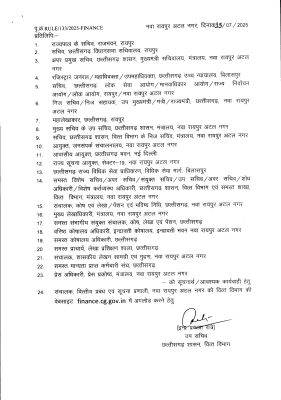 पृ.क्र./RULE/133/2025-FINANCE नवा रायपुर अटल नगर, दिनांक 15/07/2025
प्रतिलिपि:-
1. राज्यपाल के सचिव, राजभवन, रायपुर
2. सचिव, छत्तीसगढ़ विधानसभा सचिवालय, रायपुर
3. अपर प्रमुख सचिव, छत्तीसगढ़ शासन, मुख्यमंत्री सचिवालय, मंत्रालय, नवा रायपुर अटल
नगर
4. रजिस्ट्रार जनरल/महाधिवक्ता/उपमहाधिवक्ता, छत्तीसगढ़ उच्च न्यायालय, बिलासपुर
5. सचिव, छत्तीसगढ़ लोक सेवा आयोग/मानवाधिकार आयोग/राज्य निर्वाचन
आयोग/लोक आयोग, रायपुर/नवा रायपुर अटल नगर
6. निज सचिव/निज सहायक, उप मुख्यमंत्री/मंत्री/राज्यमंत्री, छत्तीसगढ़, नवा रायपुर
अटल नगर
7. महालेखाकार, छत्तीसगढ़, रायपुर
8. मुख्य सचिव के उप सचिव, छत्तीसगढ़ शासन, मंत्रालय, नवा रायपुर अटल नगर
9. सचिव, छत्तीसगढ़ शासन, वित्त विभाग के निज सचिव, मंत्रालय, नवा रायपुर अटल नगर
10. आयुक्त, जनसंपर्क संचालनालय, नवा रायपुर अटल नगर
11. आवासीय आयुक्त, छत्तीसगढ़ भवन नई दिल्ली
12. राज्य सूचना आयुक्त, सेक्टर-19, नवा रायपुर अटल नगर
13. छत्तीसगढ़ राज्य विधिक सेवा प्राधिकरण, विधिक सेवा मार्ग, बिलासपुर
14. समस्त विशेष सचिव/अपर सचिव/संयुक्त सचिव/उप सचिव/अवर सचिव/शोध
अधिकारी/विशेष कर्तव्यस्थ अधिकारी, छत्तीसगढ़ शासन, वित्त विभाग एवं समस्त शाखा,
वित्त विभाग, मंत्रालय, नवा रायपुर अटल नगर
15. संचालक, कोष एवं लेखा/पेंशन एवं भविष्य निधि, छत्तीसगढ़, नवा रायपुर अटल नगर
16. मुख्य लेखाधिकारी, मंत्रालय, नवा रायपुर अटल नगर
17. समस्त संभागीय संयुक्त संचालक, कोष, लेखा एवं पेंशन, छत्तीसगढ़
18. वरिष्ठ कोषालय अधिकारी, इन्द्रावती कोषालय, इन्द्रावती भवन नवा रायपुर अटल नगर
19. समस्त कोषालय अधिकारी, छत्तीसगढ़
20. समस्त प्राचार्य, लेखा प्रशिक्षण शाला, छत्तीसगढ़
21. संचालक, शासकीय लेखन सामग्री एवं मुद्रण, नवा रायपुर अटल नगर
22. समस्त मान्यता प्राप्त कर्मचारी संघ, छत्तीसगढ़
23. प्रेस अधिकारी, प्रेस प्रकोष्ठ, मंत्रालय, नवा रायपुर अटल नगर
- को सूचनार्थ/आवश्यक कार्यवाही हेतु
24. संचालक, वित्तीय प्रबंध एवं सूचना प्रणाली, नवा रायपुर अटल नगर को वित्त विभाग की
वेबसाईट finance.cg.gov.in में अपलोड करने हेतु
उप सचिव
छत्तीसगढ़ शासन, वित्त विभाग